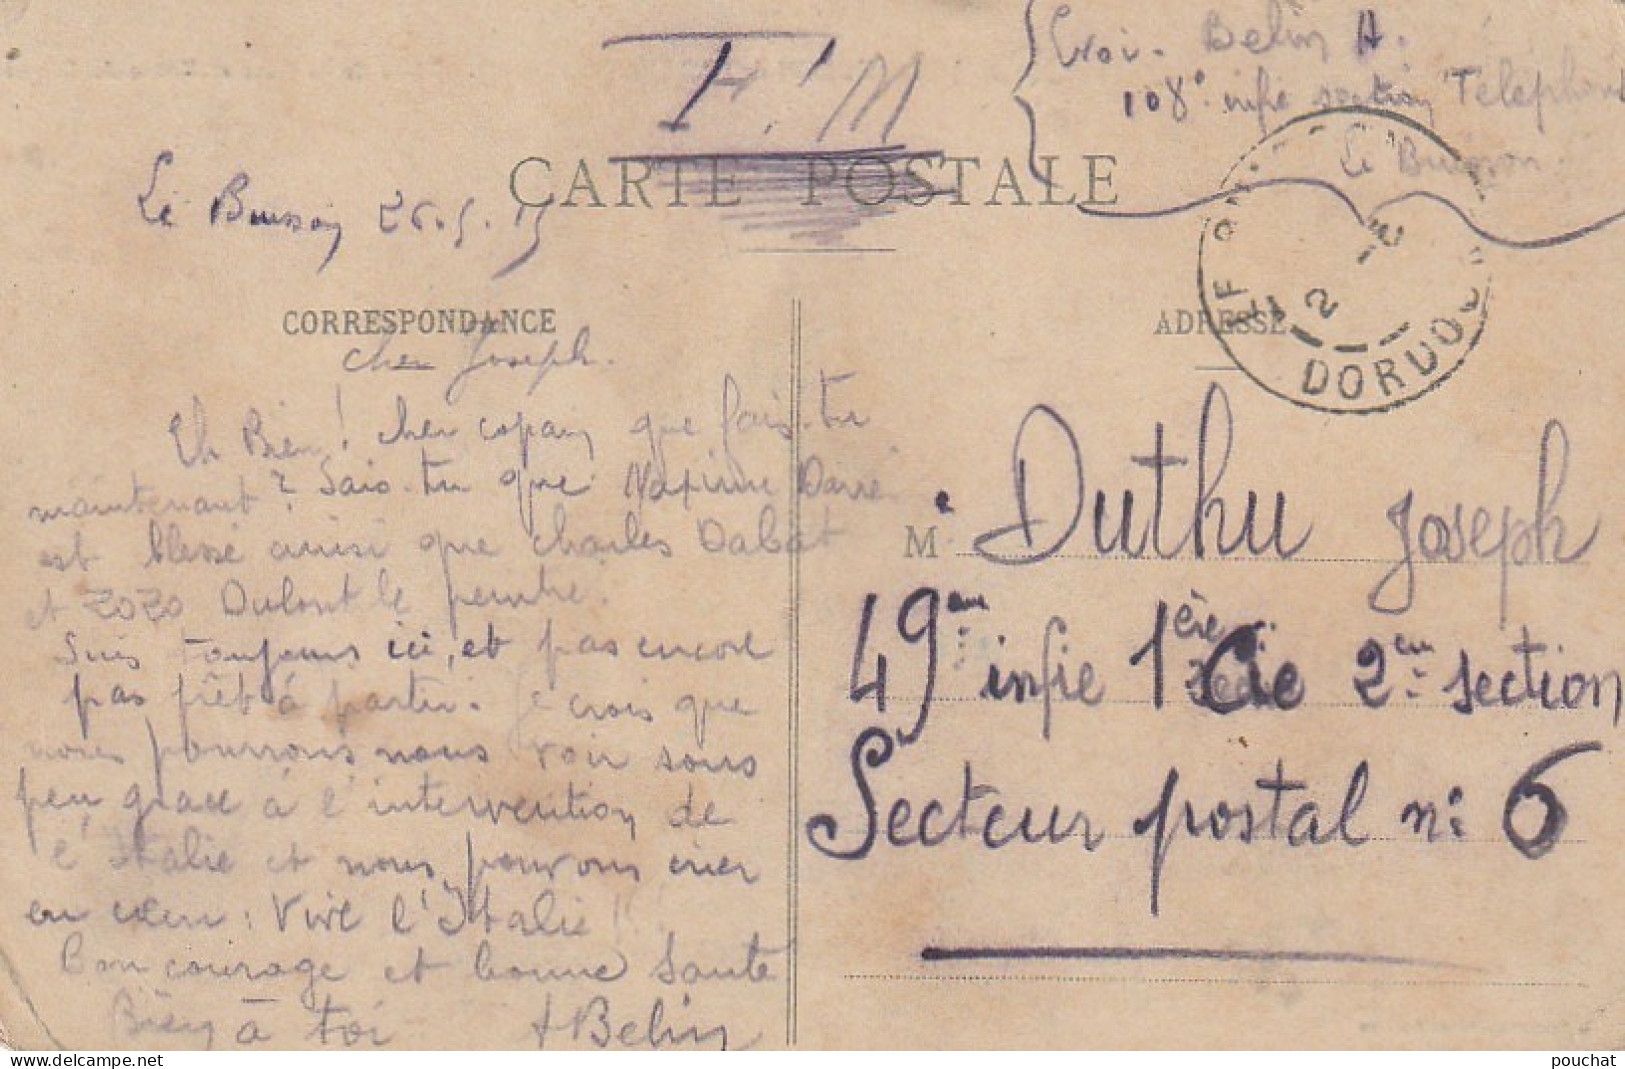 F.M
Envoi. Belin A.
108e infie section Téléphon
Le Buisson
CARTE POSTALE
Le Buisson 26.5.15
CORRESPONDANCE
ADRESSE
DORDO
cher Joseph.
Eh Bien! cher copain que fais-tu
maintenant? Sais-tu que Maxime Darré
est blessé ainsi que Charles Dabat
et Zozo Dulout le peintre.
Suis toujours ici, et pas encore
pas prêt à partir. Je crois que
nous pourrons nous voir sous
peu grace à l'intervention de
l'Italie et nous pouvons crier
en cœur: Vive l'Italie!
Bon courage et bonne Santé
Bien à toi
ABelin
M. Duthu Joseph
49em infie 1ère Cie 2em section
Secteur postal n: 6
pouchat